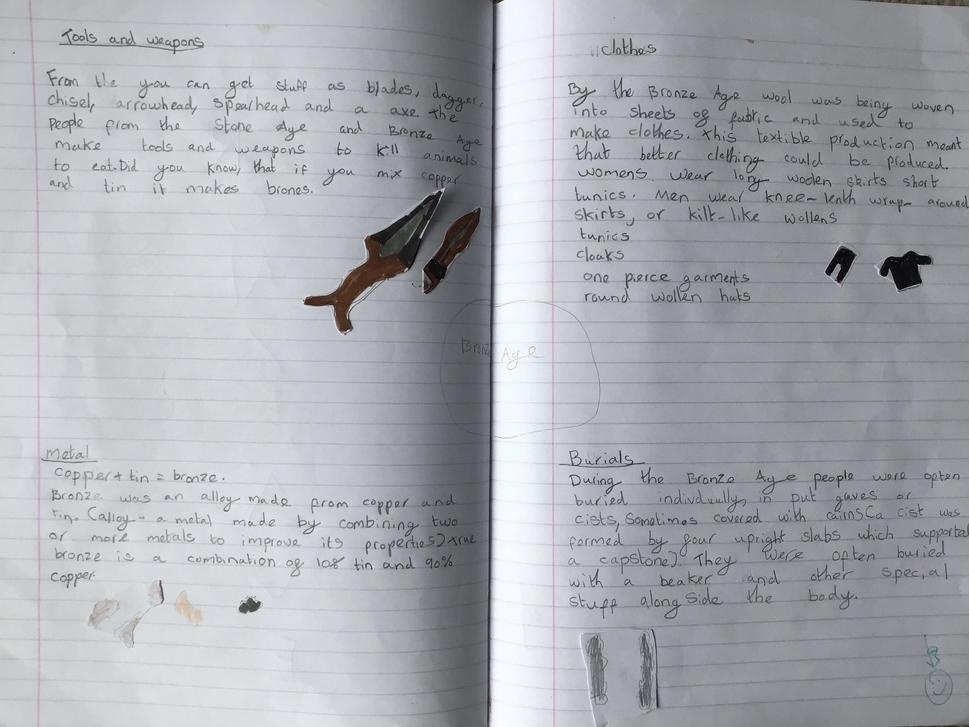 Tools and weapons
From the you can get stuff as blades, dagger,
chisel, arrowhead, spearhead and a axe. the
people from the Stone Age and Bronze Age
make tools and weapons to kill animals
to eat. Did you know, that if you mix copper
and tin it makes brones.
clothes
By the Bronze Age wool was being woven
into sheets of fabric and used to
make clothes. this textible production meant
that better clothing could be produced.
womens wear long woolen skirts short
tunics. Men wear knee-lenth wrap-around
skirts, or kilt-like wollens
tunics
cloaks
one pierce garments
round wollen hats
Bronze Age
Metal
copper + tin = bronze.
Bronze was an alley made from copper and
tin. (alloy - a metal made by combining two
or more metals to improve its properties) true
bronze is a combination of 10% tin and 90%
copper.
Burials
During the Bronze Age people were often
buried individually, in put gaves or
cists, Sometimes covered with cairns (a cist was
formed by four upright slabs which supported
a capstone) They were often buried
with a beaker and other special
stuff along side the body.